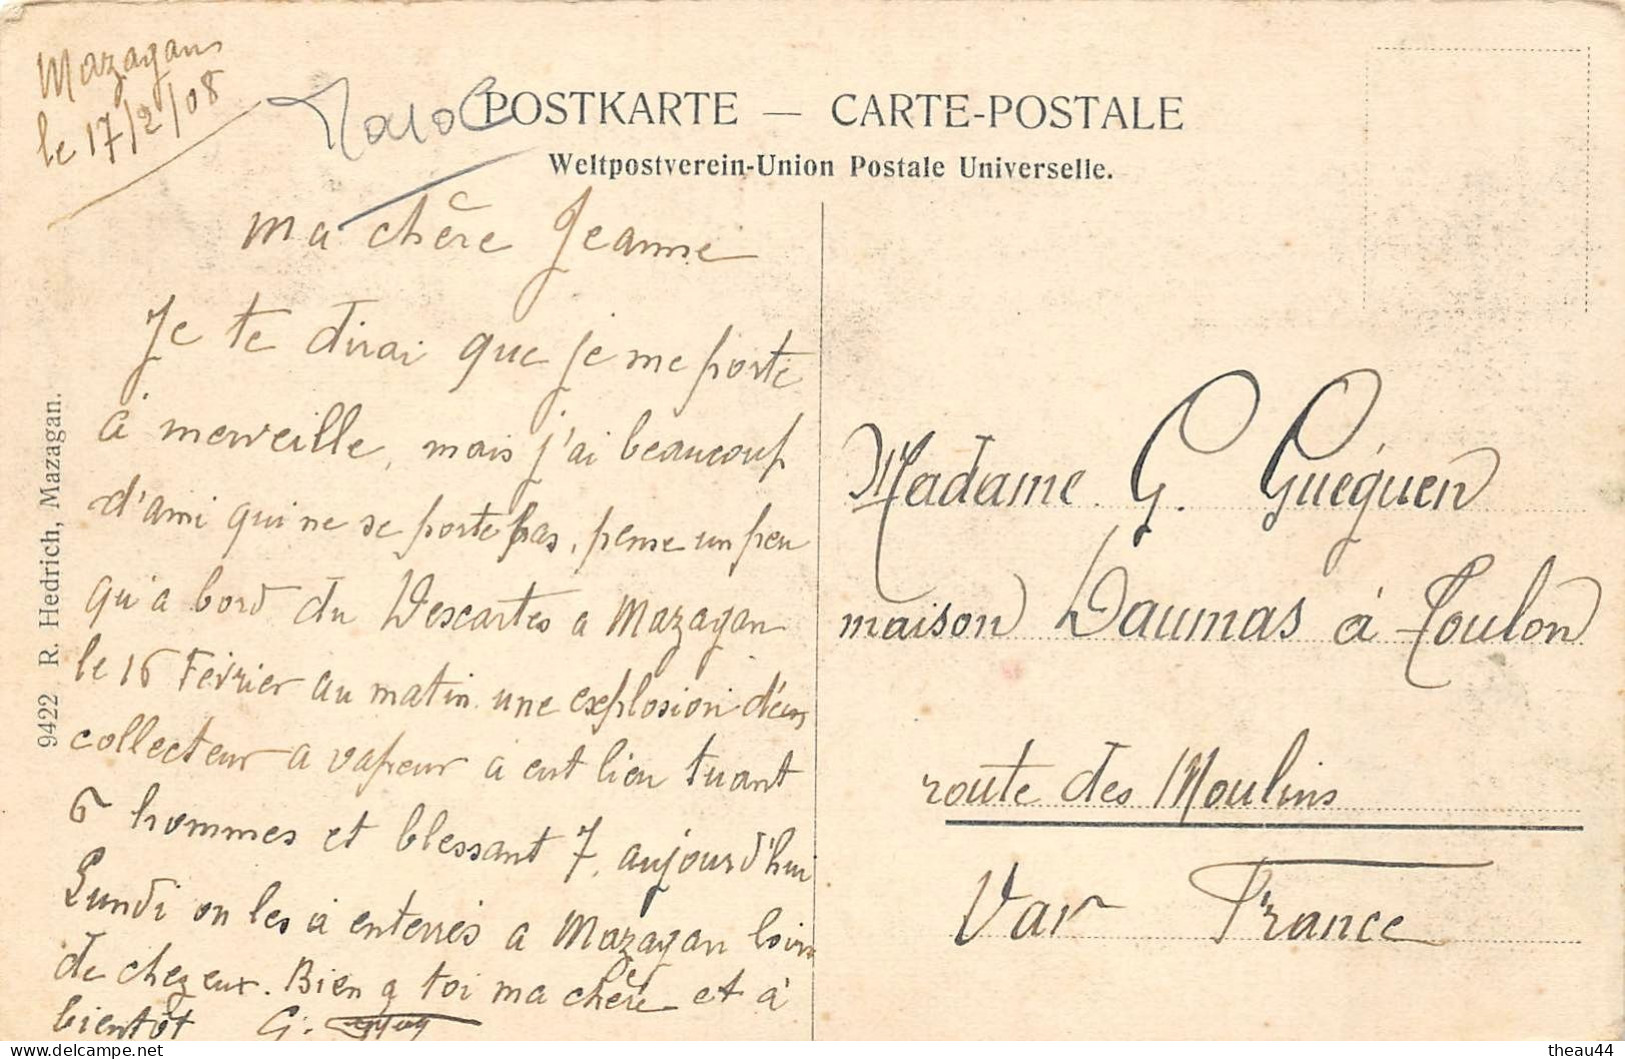 Mazagan
le 17/2/08
Maroc
POSTKARTE — CARTE-POSTALE
Weltpostverein-Union Postale Universelle.
ma chère Jeanne
Je te dirai que je me porte
à merveille, mais j'ai beaucoup
d'ami qui ne se porte pas, pense un peu
qu'a bord du Descartes a Mazagan
le 16 Février au matin une explosion d'un
collecteur a vapeur à eut lieu tuant
6 hommes et blessant 7, aujourd'hui
Lundi on les à enterrés a Mazagan loin
de chez eux. Bien a toi ma chère et à
bientôt G.
Madame G. Guéguen
maison Daumas à Toulon
route des Moulins
Var France
9422 R. Hedrich, Mazagan.
theau44